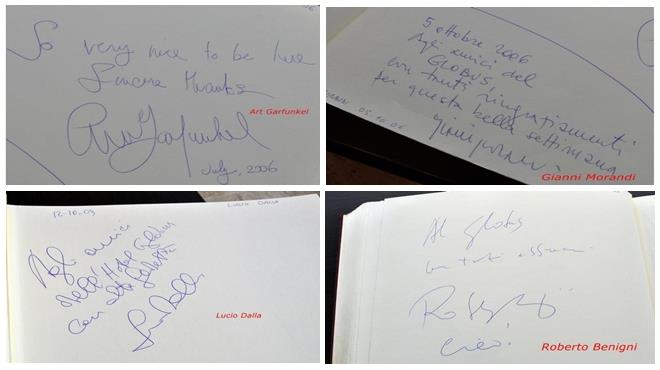 So very nice to be here
Sincere Thanks
Art Garfunkel
Art Garfunkel
July, 2006
5 ottobre 2006
Agli amici del
GLOBUS
con tanti ringraziamenti
per questa bella settimana
05.10.06
Gianni Morandi
12-10-09
LUCIO DALLA
Agli amici
dell'Hotel Globus
con
Lucio Dalla
Lucio Dalla
Al globus
con tutt
Ciao!
Roberto Benigni